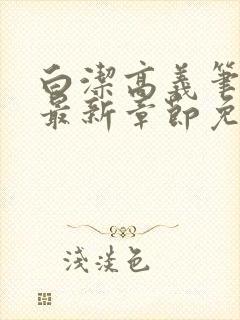 白潔高義筆
最新章節免
淺淡色